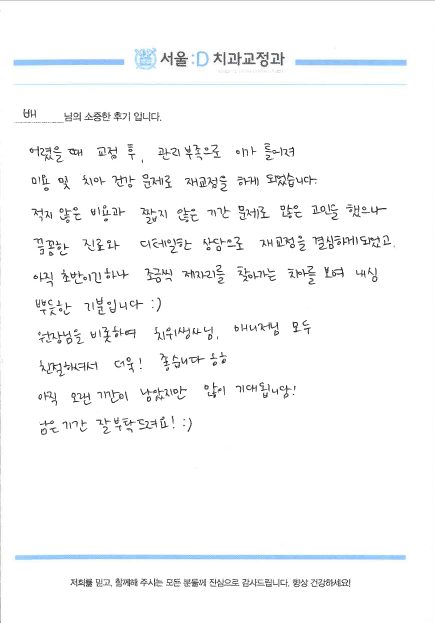 서울:D 치과교정과
배 님의 소중한 후기 입니다.
어렸을 때 교정 후, 관리 부족으로 이가 틀어져
미용 및 치아 건강 문제로 재교정을 하게 되었습니다.
적지 않은 비용과 짧지 않은 기간 문제로 많은 고민을 했으나
꼼꼼한 진료와 디테일한 상담으로 재교정을 결심하게되었고,
아직 초반이긴하나 조금씩 제자리를 찾아가는 치아를 보며 내심
뿌듯한 기분입니다 :)
원장님을 비롯하여 치위생사님, 매니저님 모두
친절하셔서 더욱! 좋습니다 ㅎㅎ
아직 오랜 기간이 남았지만 많이 기대됩니당!
남은 기간 잘 부탁드려요! :)
저희를 믿고, 함께해 주시는 모든 분들께 진심으로 감사드립니다. 항상 건강하세요!